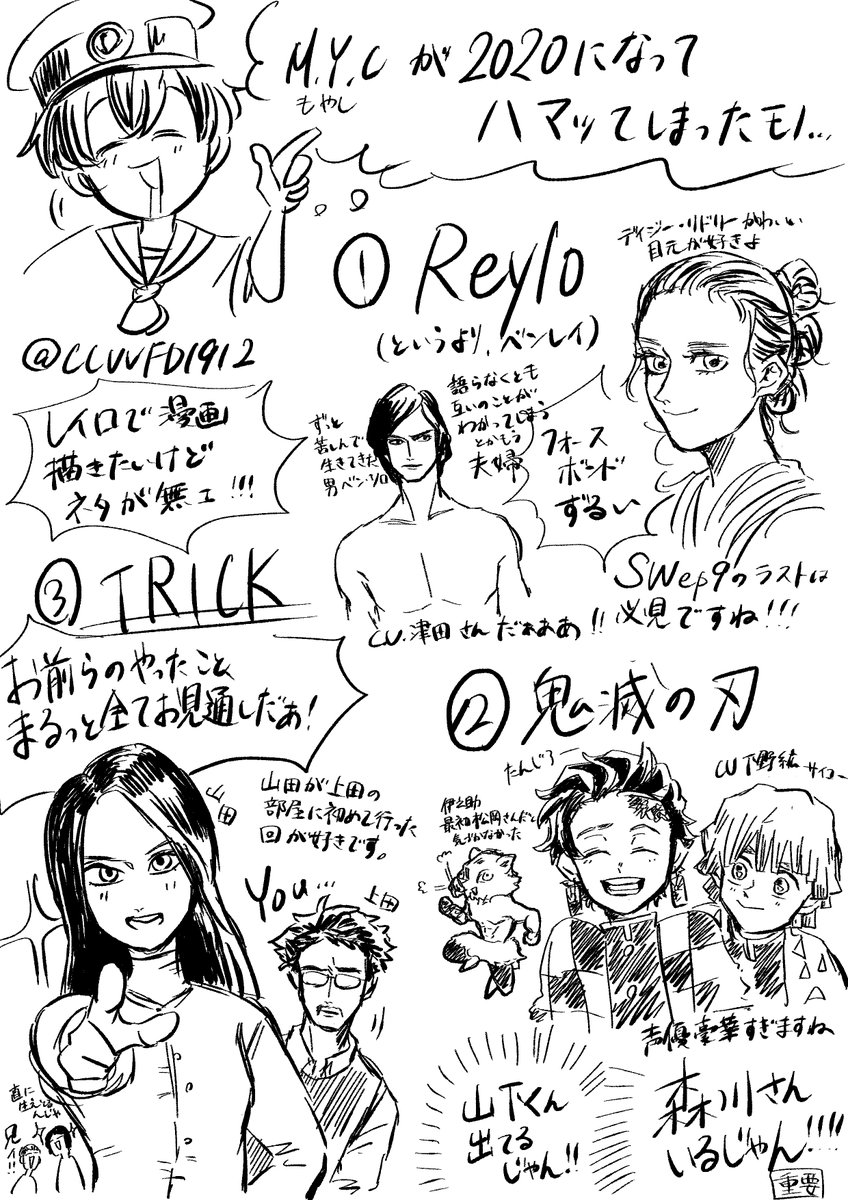 M.Y.Cが2020になって
もやし
ハマッてしまったモノ...
@CCUVVFD1912
① Reylo
(というより、ベンレイ)
デイジー・リドリーかわいい
目元が好きよ
レイロで漫画
描きたいけど
ネタが無ェ!!!
ずっと
苦しんで
生きてきた
男ベン・ソロ
語らなくとも
互いのことが
わかってしまう
とかもう
夫婦
フォース
ボンド
ずるい
CV.津田さんだぁああ!!
SWep9のラストは
必見ですね!!!
③ TRICK
お前らのやったこと
まるっと全てお見通しだぁ!
山田
山田が上田の
部屋に初めて行った
回が好きです。
You...
上田
直に
生えとる
んじゃ
兄ィ!!
② 鬼滅の刃
たんじろー
CV下野紘サイコー
伊之助
最初松岡さんだと
気づかなかった
声優豪華すぎますね
山下くん
出てる
じゃん!!
森川さん
いるじゃん!!!!
重要